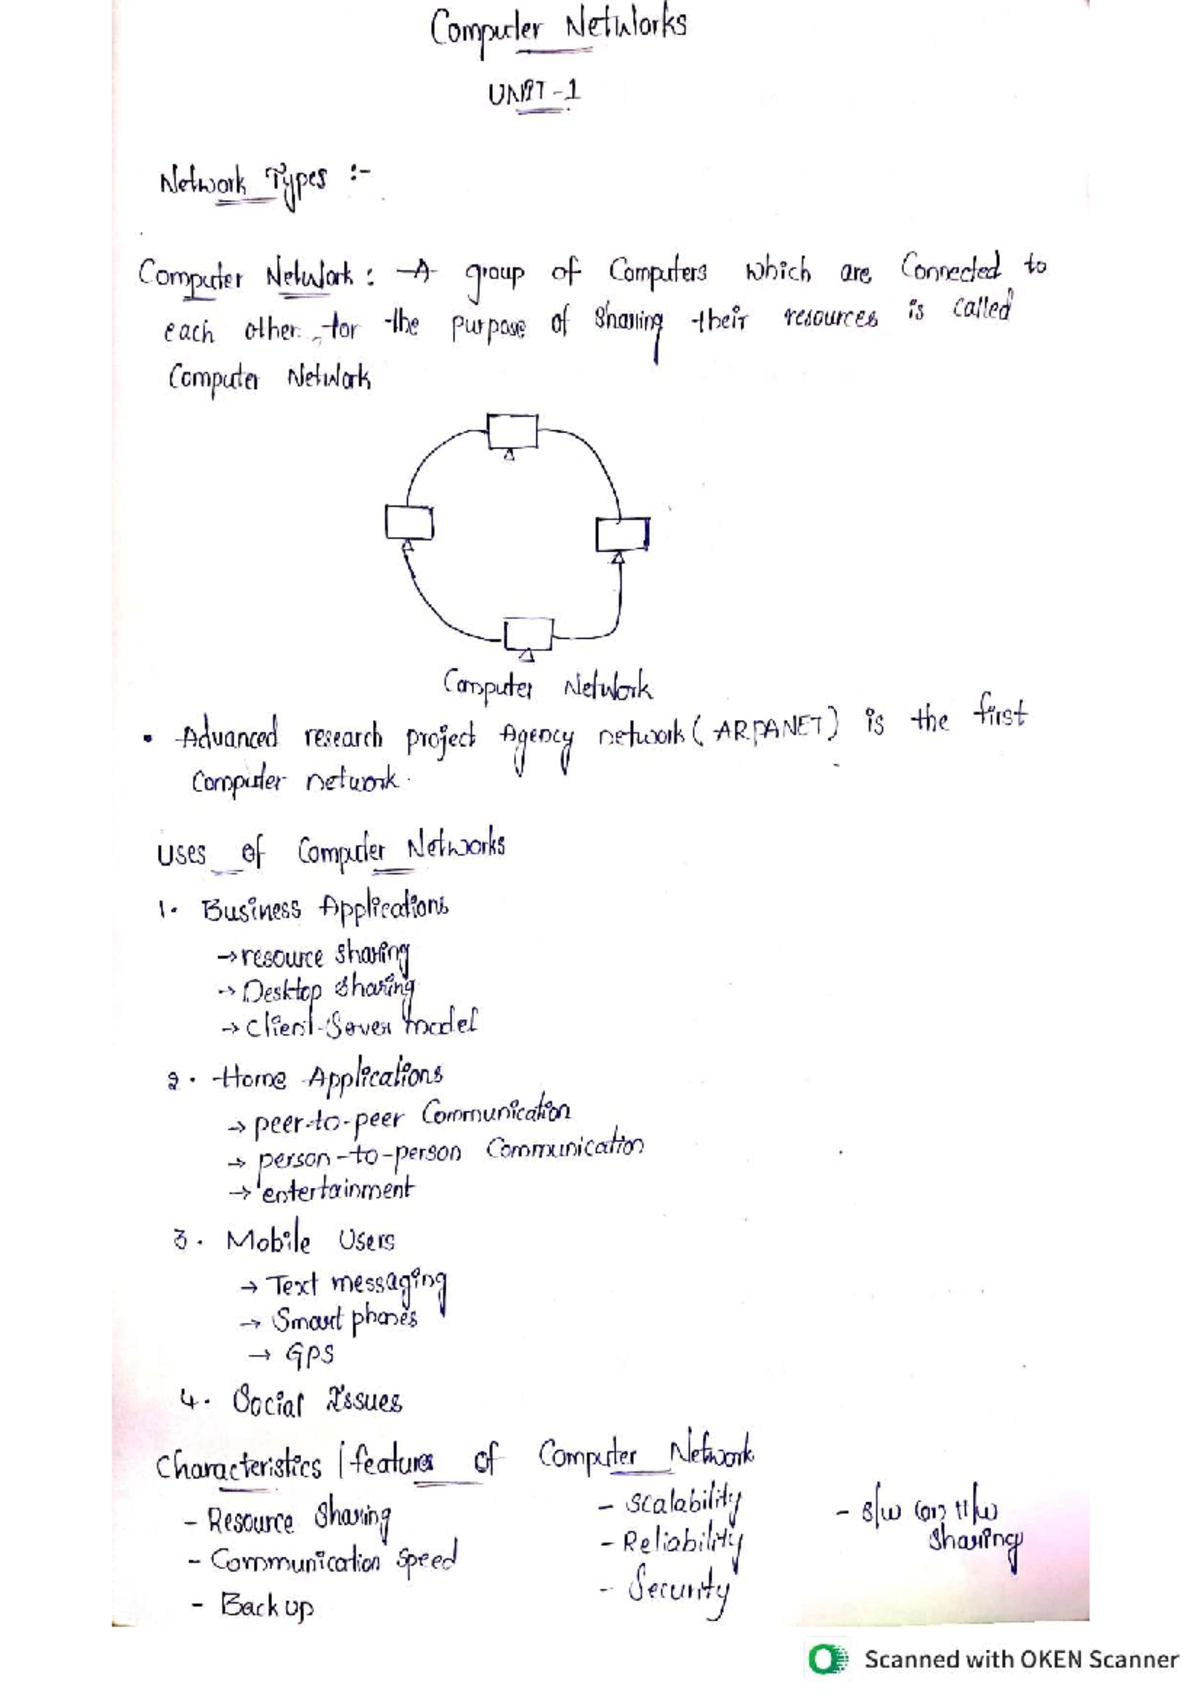 Computer Networks
UNIT-1
Network Types :-
Computer Network : A group of Computers which are Connected to
each other for the purpose of Sharing their resources is called
Computer Network
Computer Network
• Advanced research project Agency network (ARPANET) is the first
Computer network.
Uses of Computer Networks
1. Business Applications
→ resource sharing
→ Desktop sharing
→ Client-Server model
2. Home Applications
→ peer-to-peer Communication
→ person-to-person Communication
→ entertainment
3. Mobile Users
→ Text messaging
→ Smart phones
→ GPS
4. Social Issues
Characteristics / features of Computer Network
- Resource Sharing
- Communication Speed
- Back up
- Scalability
- Reliability
- Security
- S/w (or) H/w
Sharing
Scanned with OKEN Scanner